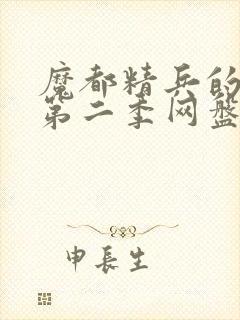 魔都精兵的
第二季网盘
申长生